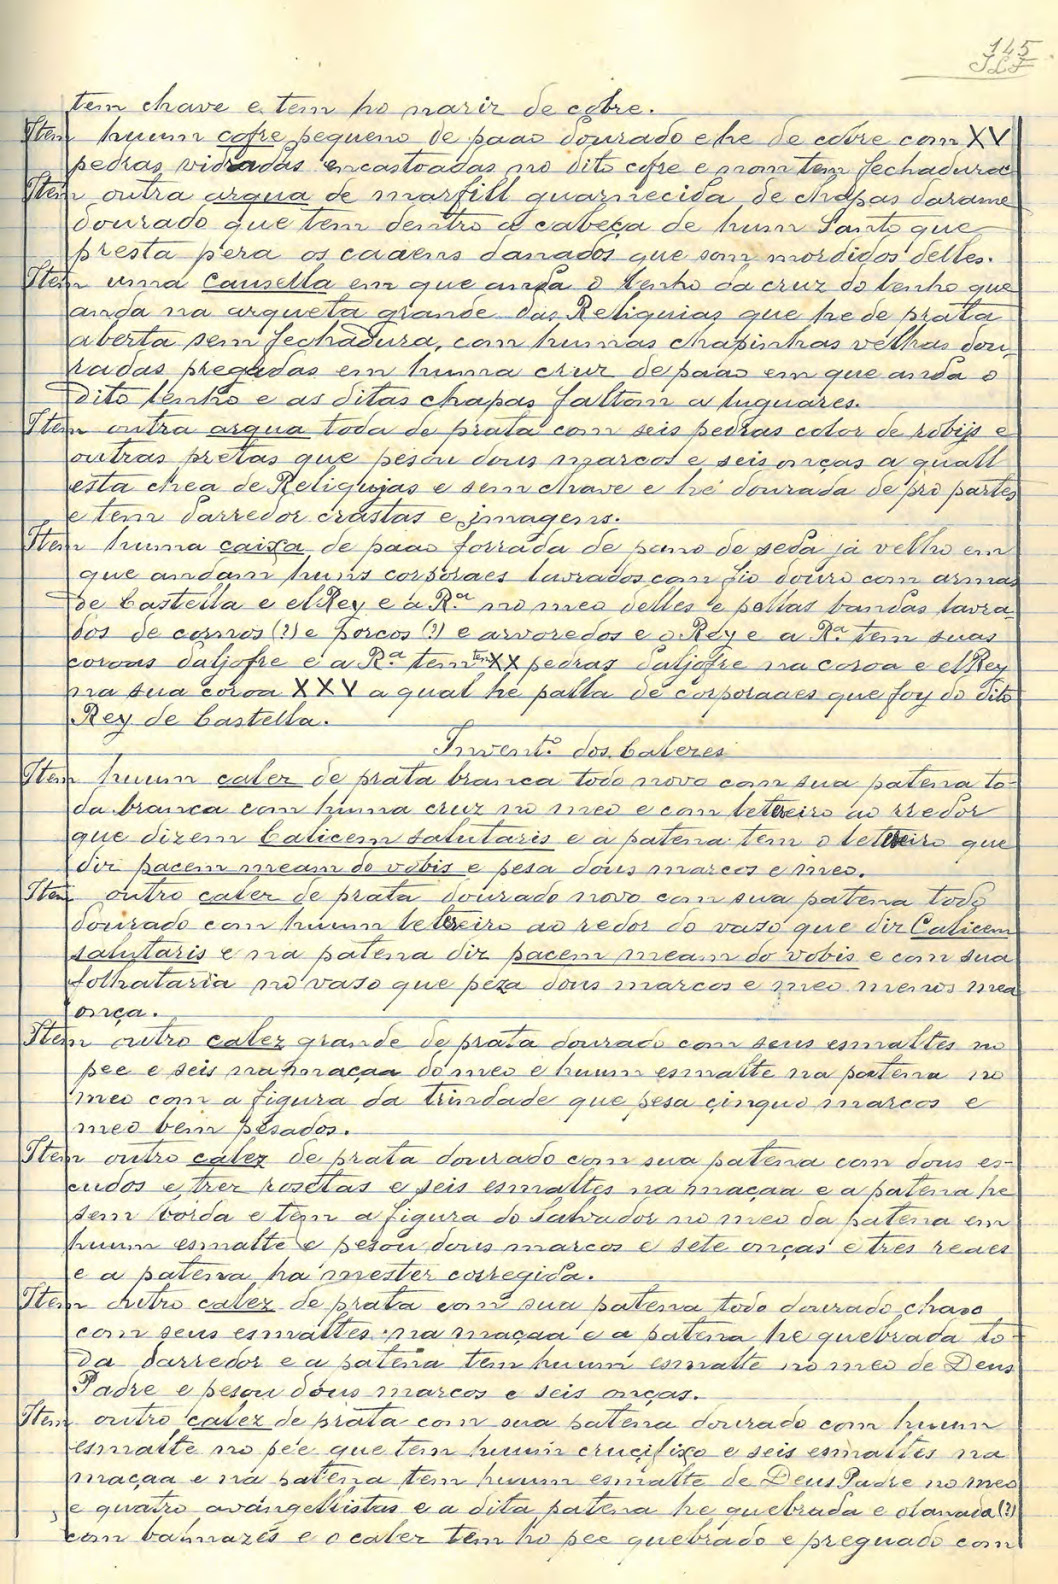 145
tem chave e tem ho nariz de cobre.
Item huum cofre pequeno de paao dourado e he de cobre com XV
pedras vidradas encastoadas no dito cofre e nom tem fechadura
Item outra arqua de marfill guarnecida de chapas darame
dourado que tem dentro a cabeça de hum Santo que
presta pera os caaens danados que som mordidos delles.
Item uma Causella em que anda o lenho da cruz do lenho que
anda na arqueta grande das Reliquias que he de prata
aberta sem fechadura, com humas chapinhas velhas dou-
radas pregadas em huma cruz de paao em que anda o
Dito lenho e as ditas chapas faltom a luguares.
Item outra arqua toda de prata com seis pedras color de robijs e
outras pretas que pesou dous marcos e seis onças a quall
esta chea de Reliquias e sem chave e hé dourada de pro partes
e tem darredor crastas e imagens.
Item huma caixa de paao forrada de pano de seda já velho em
que andam huns corporaes lavrados com fio douro com armas
de Castella e el Rey e a R.ª no meo delles e pellas bandas lavra-
dos de cornos (?) e porcos (?) e arvoredos e o Rey e a R.ª tem suas
coroas daljofre e a R.ª tem XX pedras daljofre na coroa e el Rey
na sua coroa XXV a qual hé palla de corporaaes que foy do dito
Rey de Castella.
Invent.º dos Calezes
Item huum calez de prata branca todo novo com sua patena to-
da branca com huma cruz no meo e com letreiro ao rredor
que dizem Calicem salutaris e a patena tem o letreiro que
diz pacem meam do vobis e pesa dous marcos e meo.
Item outro calez de prata dourado novo com sua patena todo
dourado com huum letreiro ao redor do vaso que diz Calicem
salutaris e na patena diz pacem meam do vobis e com sua
folhataria no vaso que peza dous marcos e meo menos mea
onça.
Item outro calez grande de prata dourado com seus esmaltes no
pee e seis na maçaa do meo e huum esmalte na patena no
meo com a figura da trindade que pesa çinquo marcos e
meo bem pesados.
Item outro calez de prata dourado com sua patena com dous es-
cudos e trez rosetas e seis esmaltes na maçaa e a patena he
sem borda e tem a figura do Salvador no meo da patena em
huum esmalte e pesou dous marcos e sete onças e tres reaes
e a patena ha mester corregida.
Item outro calez de prata com sua patena todo dourado chaao
com seus esmaltes na maçaa e a patena he quebrada to-
da darredor e a patena tem huum esmalte no meo de Deus
Padre e pesou dous marcos e seis onças.
Item outro calez de prata com sua patena dourado com huum
esmalte no pée que tem huum crucifixo e seis esmaltes na
maçaa e na patena tem huum esmalte de Deus Padre no meo
e quatro avangellistas e a dita patena he quebrada e (?)
com e o calez tem ho pee quebrado e preguado com